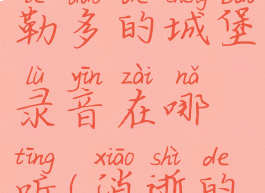 勒多的城堡
lù yīn zài nǎ
录音在哪
tīng xiāo shì de
听(消逝的